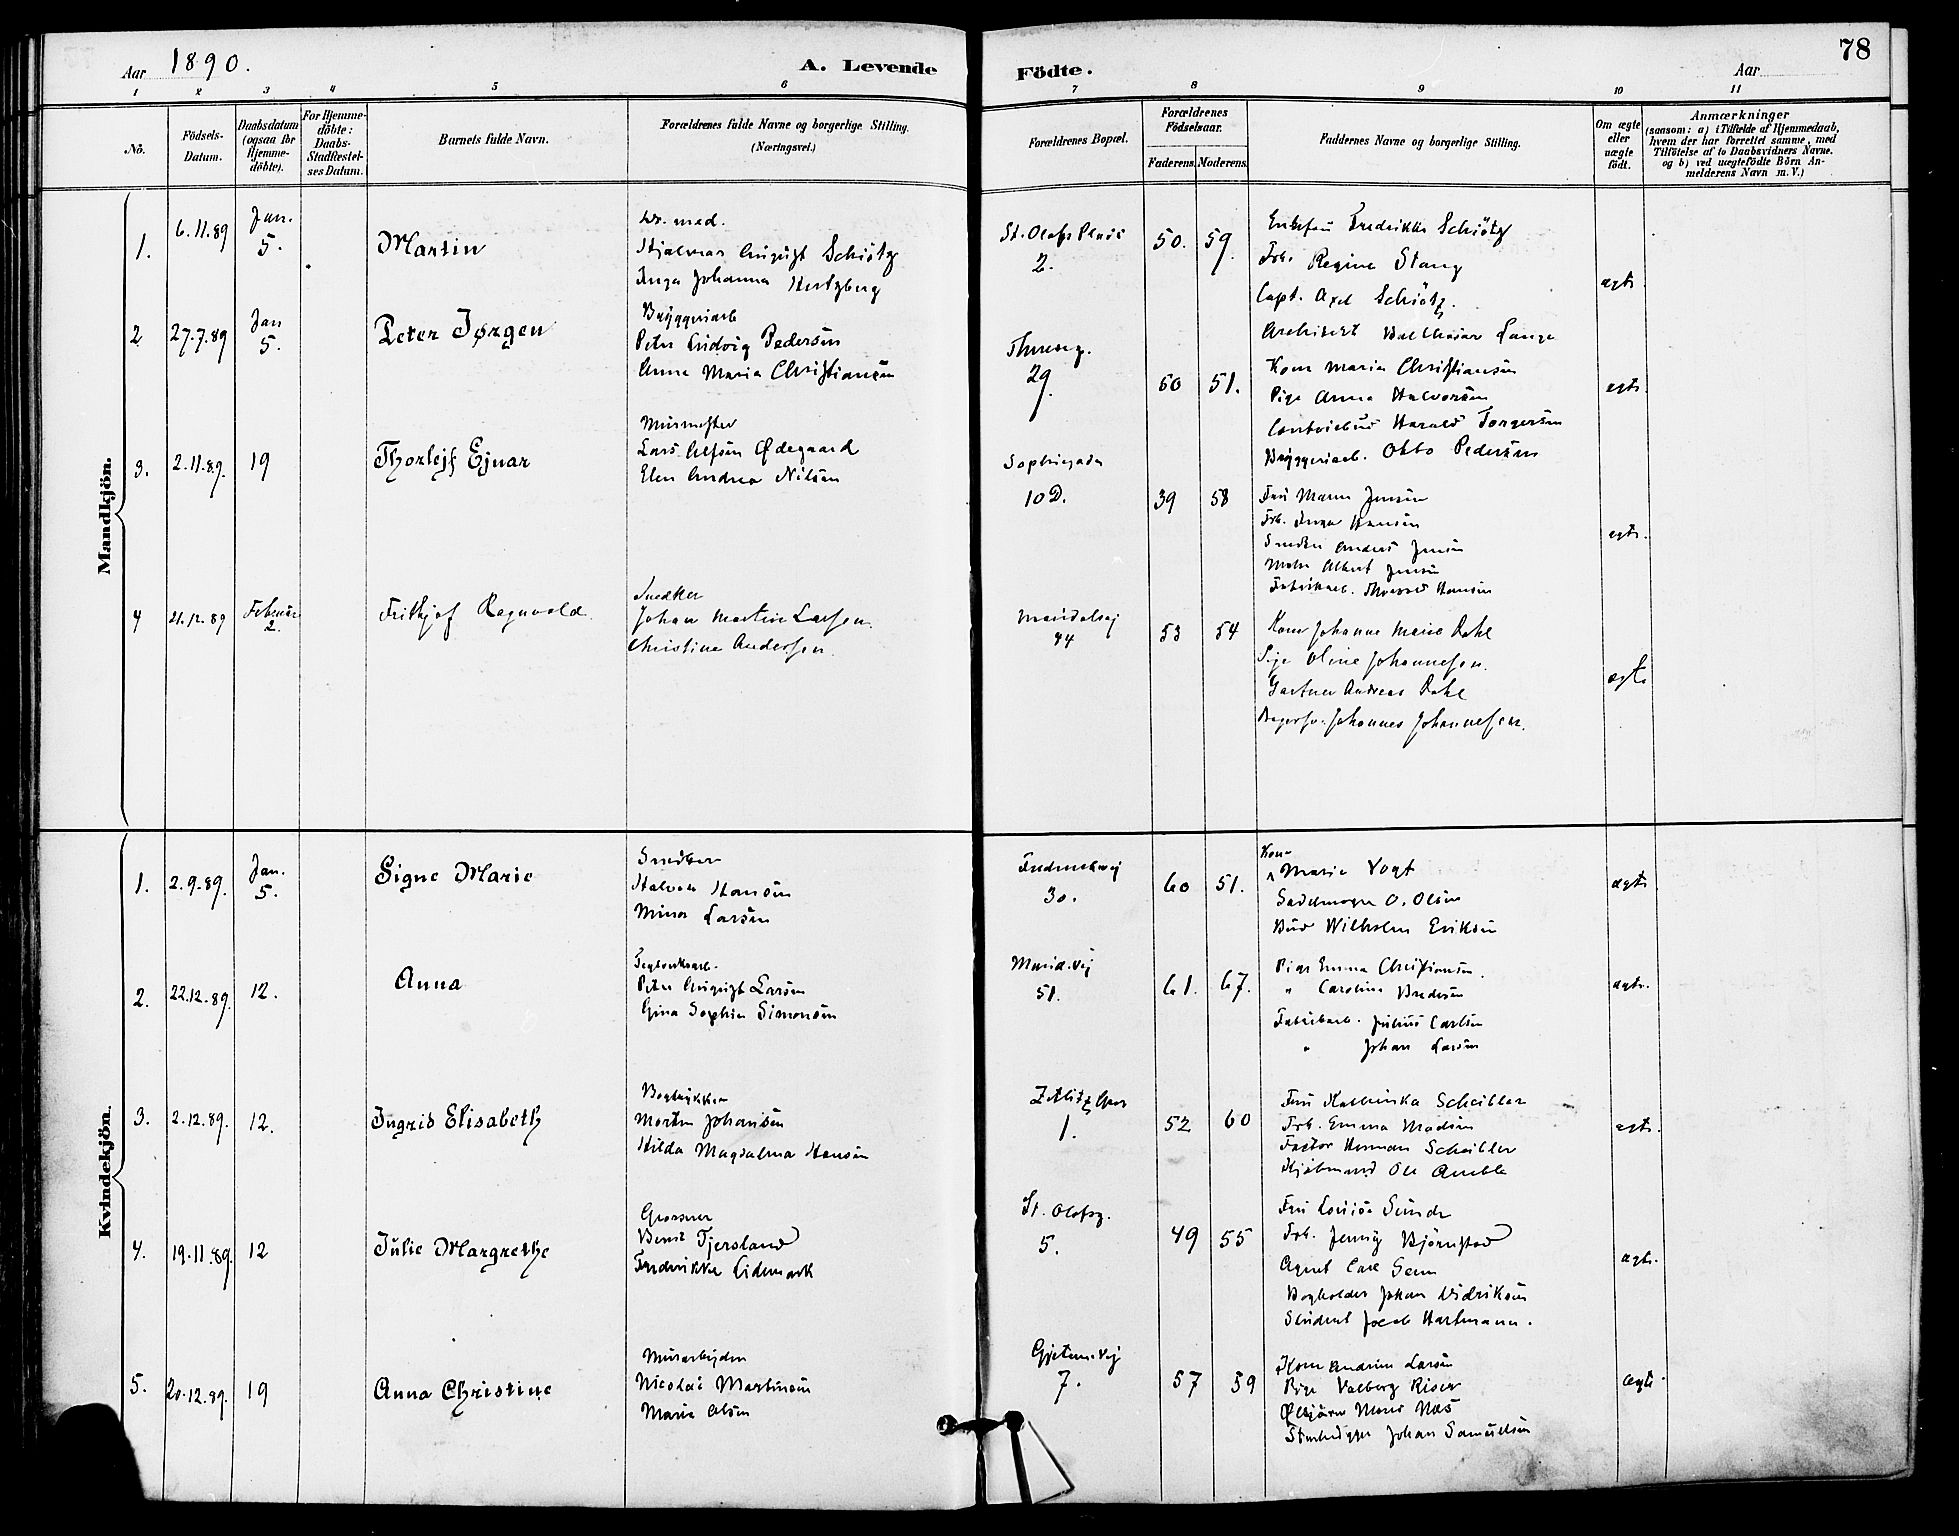 78
Aar 1890.
A. Levende Födte.
Aar
1 2 3 4 5 6 7 8 9 10 11
Nö.
Födsels-Datum.
Daabsdatum (ogsaa for Hjemme-döbte).
For Hjemme-döbte: Daabs-Stadfæstel-ses Datum.
Barnets fulde Navn.
Forældrenes fulde Navne og borgerlige Stilling. (Næringsvei.)
Forældrenes Bopæl.
Forældrenes Födselsaar.
Faderens. Moderens.
Faddernes Navne og borgerlige Stilling.
Om ægte eller uægte födt.
Anmærkninger
(saasom: a) i Tilfælde af Hjemmedaab, hvem der har forrettet samme, med Tilföielse af to Daabsvidners Navne. og b) ved uægtefödte Börn An-melderens Navn m. V.)
Mandkjön.
1. 6.11.89 Jan. 5. Martin
Dr. med.
Hjalmar August Schiøtz
Inga Johanna Hertzberg
St. Olafs Plads 2. 50. 59.
Enkefru Fredrikke Schiøtz
Frk. Regine Stang
Capt. Axel Schiøtz.
Architekt Balthasar Lange
ægte
2 27.7.89 Jan 5. Peter Jørgen
Bryggeriarb
Peter Ludvig Pedersen
Anne Marie Christiansen
29 60 51.
Kone Marie Christiansen
Pige Anna Halvorsen
Contoirbud Harald Torgersen
Bryggeriarb. Otto Pedersen
ægte.
3. 2.11.89. 19 Thorlejf Ejnar
Murmester
Lars Olsen Ødegaard
Elen Andrea Nilsen
Sophiegade 10 D. 39 58
Fru Maren Jensen
Frk. Inga Hansen
Snedker Anders Jensen
Maler Albert Jensen
Fabrikarb. Thorvald Hansen
ægte.
4 21.12.89 Februar 2. Frithjof Ragnvald
Snedker
Johan Martin Larsen.
Christine Andersen.
Maridalsvej 44 53 54
Kone Johanne Marie Dahl
Pige Oline Johannesen.
Gartner Andreas Dahl
Bagersv. Johannes Johannesen.
ægte
Kvindekjön.
1. 2.9.89. Jan. 5. Signe Marie
Snedker
Halvor Hansen
Mina Larsen
30. 60 51.
Kone Marie Vogt
Sadelmager O. Olsen
Bud Wilhelm Eriksen
ægte
2. 22.12.89. 12. Anna
Teglverksarb.
Peter August Larsen
Gina Sophie Simonsen
Marid.vej 51. 61. 67.
Pige Emma Christiansen.
" Caroline Bredesen
Fabrikarb. Julius Carlsen
" Johan Larsen
ægte.
3. 2.12.89. 12. Ingrid Elisabeth
Bogtrykker
Morten Johansen
Hilda Magdalena Hansen
1. 52 60
Fru Kathinka Scheibler
Frk. Emma Madsen
Factor Herman Scheibler
Kjøbmand Ole Amble
ægte.
4. 19.11.89. 12 Julie Margrethe
Grosserer
Bernt Tjersland
Fredrikke Lidemark
St. Olafsg. 5. 49 55
Fru Louise Sunde
Frk. Jenny Bjørnstad
Agent Carl Senn
Bogholder Johan Didriksen
Student Jacob Hartmann.
ægte.
5. 20.12.89. 19 Anna Christine
Murarbejder
Nicolai Martinsen
Maria Olsen
7. 57 59
Kone Andrine Larsen
Pige Valborg Riser
Maria Næs
Stenhugger Johan Samuelsen
ægte